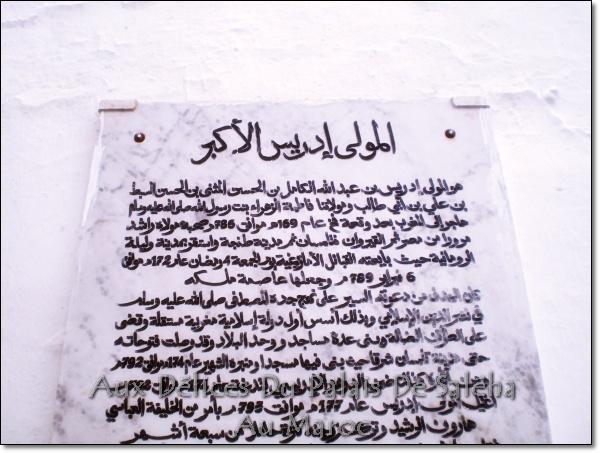 المولى إدريس الأكبر
هو المولى إدريس بن عبد الله الكامل بن الحسن المثنى بن الحسن السبط
بن علي بن أبي طالب ومولاتنا فاطمة الزهراء بنت رسول الله صلى الله عليه وسلم
هاجر إلى المغرب بعد وقعة فخ عام 169هـ موافق 786م وصحبه مولاه راشد
مرورا من مصر ثم القيروان فتلمسان ثم مدينة طنجة واستقر بمدينة وليلة
الرومانية حيث بايعته القبائل الأمازيغية يوم الجمعة 4 رمضان عام 172هـ موافق
6 فبراير 789م وجعلها عاصمة ملكه
كان الهدف من دعوته السير على نهج جده المصطفى صلى الله عليه وسلم
في نشر الدين الإسلامي وبذلك أسس أول دولة إسلامية مغربية مستقلة وقضى
على العقائد الضالة وبنى عدة مساجد ووحد البلاد وقد وصلت فتوحاته
حتى مدينة تلمسان شرقا حيث بنى فيها مسجدا ومنبره الشهير عام 174هـ موافق 792م
المولى إدريس عام 177هـ موافق 793م بأمر من الخليفة العباسي
هارون الرشيد
من سبعة أشهر
Aux Délices Du Palais De Saleha
Au Maroc